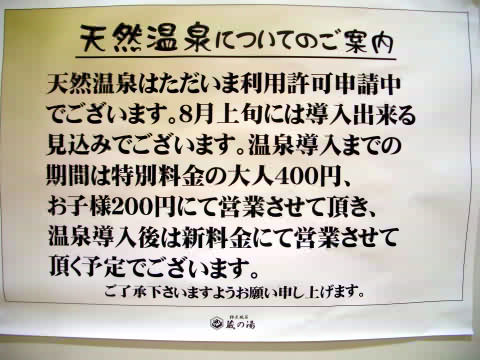 天然温泉についてのご案内
天然温泉はただいま利用許可申請中
でございます。8月上旬には導入出来る
見込みでございます。温泉導入までの
期間は特別料金の大人400円、
お子様200円にて営業させて頂き、
温泉導入後は新料金にて営業させて
頂く予定でございます。
ご了承下さいますようお願い申し上げます。
蔵の湯